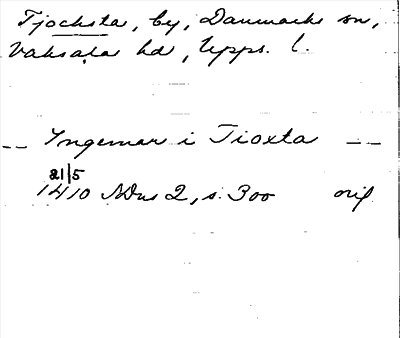 Tjocksta, by, Danmarks sn,
Vaksala hd, Upps. l.
-- Yngemar i Tioxta --
21/5
1410 NDns 2, s. 300 orig